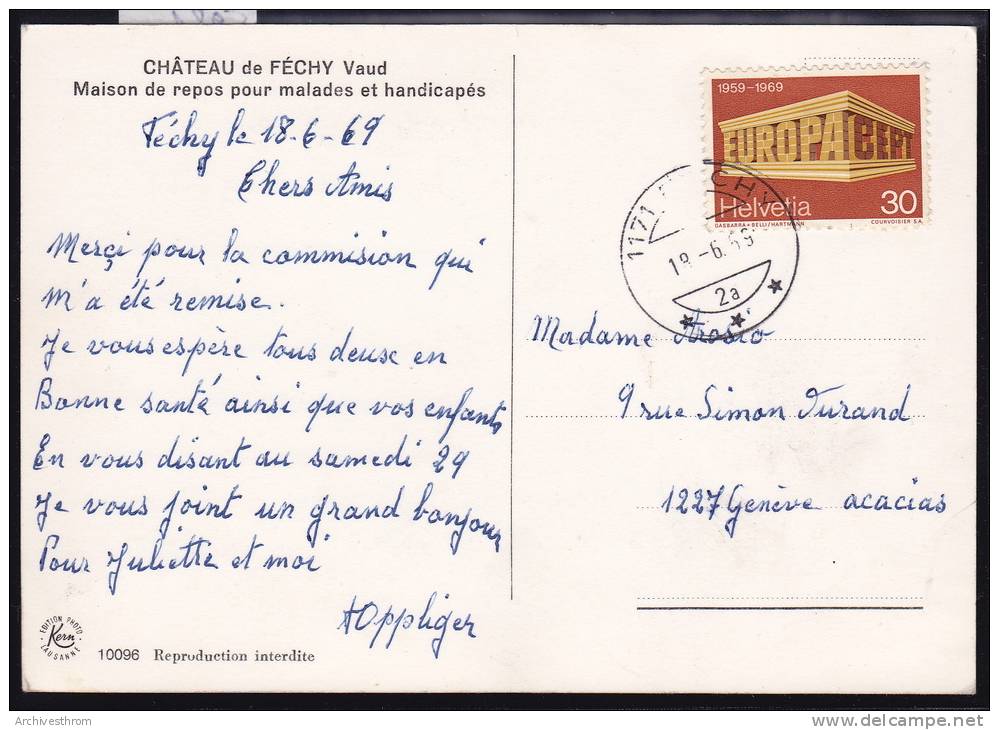 CHÂTEAU de FÉCHY Vaud
Maison de repos pour malades et handicapés
Féchy le 18-6-69
Chers Amis
Merçi pour la commision qui
m'a été remise.
Je vous espère tous deuse en
Bonne santé ainsi que vos enfants
En vous disant au samedi 29
Je vous joint un grand bonjour
Pour Juliette et moi
AOppliger
EDITION PHOTO
Kern
LAUSANNE
10096 Reproduction interdite
1959-1969
EUROPA CEPT
Helvetia 30
GASBARRA+BELLI/HARTMANN COURVOISIER S.A.
1171 FÉCHY
18.-6.69
2a
Madame Arosio
9 rue Simon Durand
1227 Genève acacias
Archivesthrom
delcampe.net